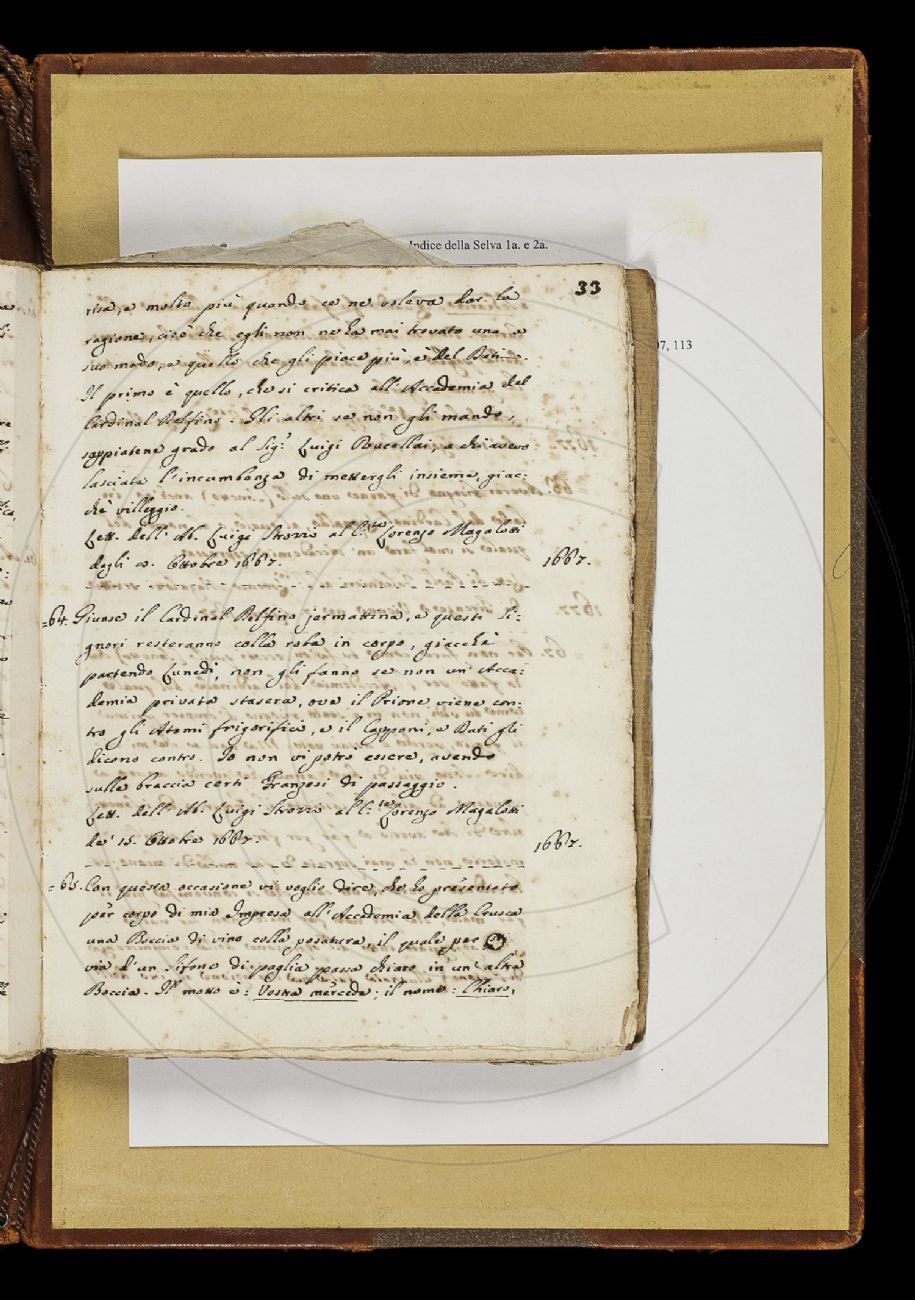 Indice della Selva 1a. e 2a.
7, 113
33
risa, e molto più quando ce ne voleva dar la
ragione, cioè che egli non ne ha mai trovato uno a
suo modo, e quello che gli piace più, è del Dati.
Il primo è quello, che si critica all'Accademia del
Cardinal Delfino. Gli altri se non gli mando,
sappiatene grado al Sig.r Luigi Rucellai, a chi avevo
lasciata l'incumbenza di mettergli insieme, giac:
chè villeggio.
Lett. dell'Ab. Luigi Strozzi al C.te Lorenzo Magalotti
degli Ottobre 1667.
1667.
=64. Giunse il Cardinal Delfino jermattina, e questi Si:
gnori resteranno colla roba in corpo, giacchè
partendo Lunedì, non gli fanno se non un'Acca:
demia privata stasera, ove il Priore viene con:
tro gli Atomi frigorifici, e il Capponi, e Dati gli
dicono contro. Io non vi potrò essere, avendo
sulle braccia certi Franzesi di passaggio.
Lett. dell'Ab. Luigi Strozzi al C.te Lorenzo Magalotti
de' 15. Ottobre 1667.
1667.
=65. Con questa occasione vi voglio dire, che ho presentato
per corpo di mia Impresa all'Accademia della Crusca
una Boccia di vino colla posatura, il quale per
via d'un Sifone di paglia passa chiaro in un'altra
Boccia. Il motto è: Vostra mercede; il nome: Chiaro,